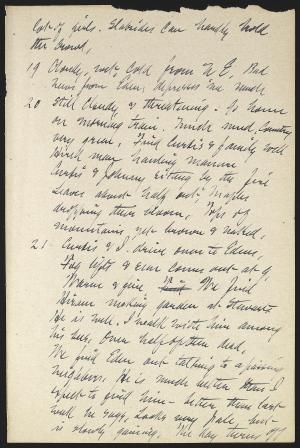 lot of girls. Slabsides can hardly hold
the crowd,
19 Cloudy, wet cold from N E, Bad
news from Eden, depresses me much
20 Still cloudy & threatening. Go home
on morning train. Much mud, Country
very green, Find Curtis & family well
Hired man hauling manure
Curtis & Johnny sitting by the fire
Leaves almost half out. Maples
dropping their bloom, Tops of
mountains yet brown & naked,
21 Curtis & I drive over to Edens,
Fog lifts & sun comes out at 9,
Warm & fine. We find
Hiram making garden at
He is well, I walk with him among
his bees, Over half of them dead,
We find Eden out talking to a passing
neighbor. He is much better than I
expect to find him - better, than last
well he says, Looks very pale, but
is slowly gaining, The hay